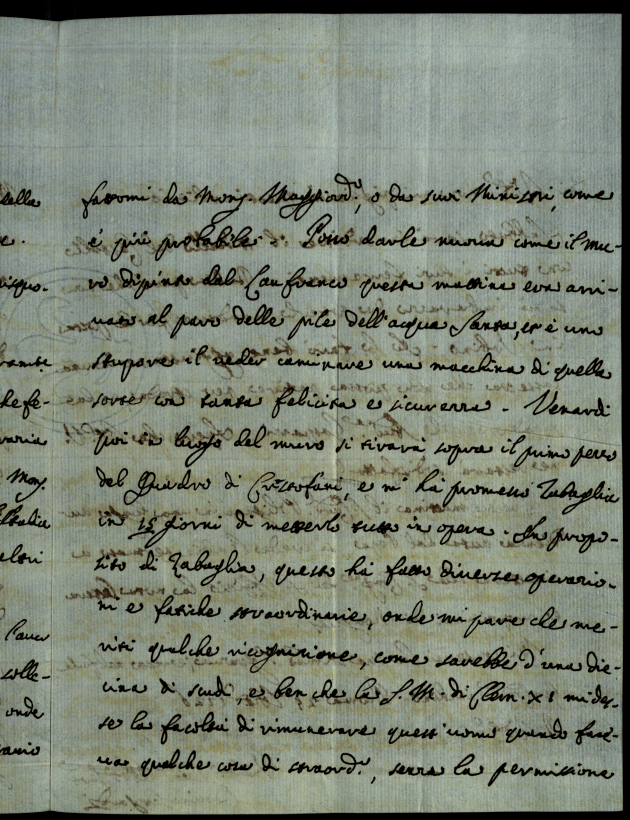 fattomi da Mons. Maggiord.°, ò da suoi Ministri, come
è più probabile. Posso darle nuova come il mu-
ro dipinto dal Lanfranco questa mattina era arri-
vato al paro delle pile dell'acqua Santa, et è uno
stupore il veder caminare una macchina di quella
sorte con tanta felicità e sicurezza. Venardì
poi in luogo del muro si tirarà sopra il primo pezzo
del Quadro di Cristofani, e m'hà promesso Zabaglia
in 15 giorni di metterlo tutto in opera. In propo-
sito di Zabaglia, questo hà fatto diverse operazio-
ni e fatiche straordinarie, onde mi pare che me-
riti qualche ricognizione, come sarebbe d'una die-
cina di scudi, e ben che la S. M. di Clem. XI mi des-
se la facoltà di rimunerare quest'uomo quando face-
va qualche cosa di straord.°, senza la permissione
della
e.
Mons.
altri
solle-
onde